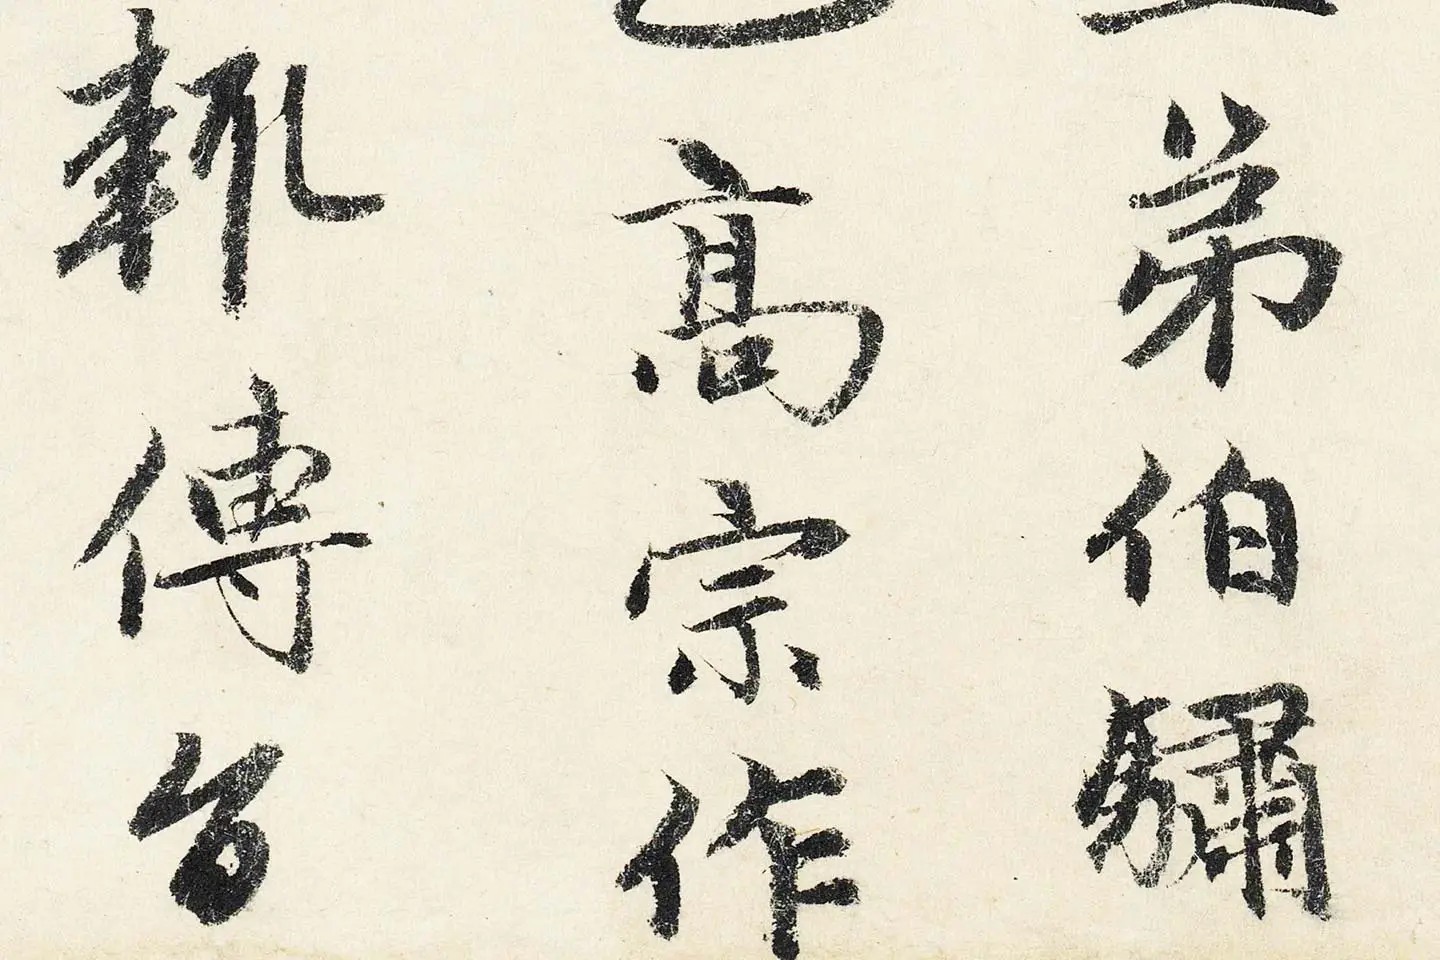 弟伯驌
高宗作
輒傳旨